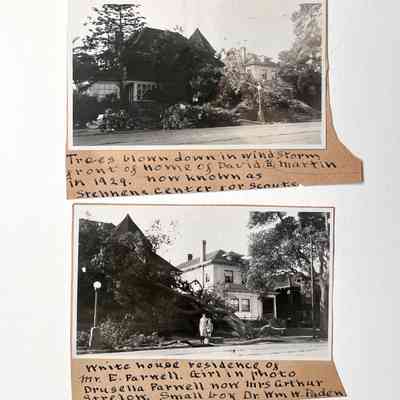 Trees blown down in wind storm
front of home of David E. Martin
in 1929. Now known as
Stennens Center for Scouts
White house residence of
Mr. E. Parnell. Girl in photo
Drusella Parnell now Mrs Arthur
Strelow. Small boy Dr. Wm W. Paden